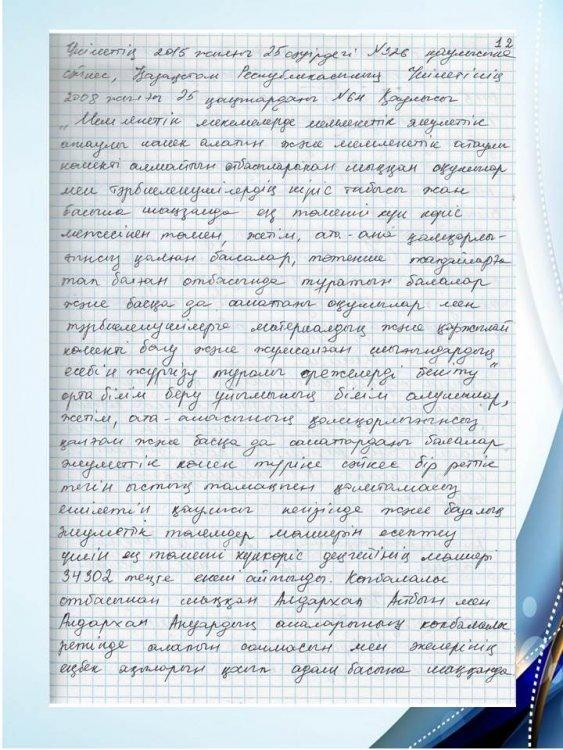 12
Үкіметтің 2015 жылғы 25 сәуірдегі №326 қаулысына
сәйкес, Қазақстан Республикасының Үкіметінің
2008 жылғы 25 қаңтардағы №64 Қаулысы
"Мемлекеттік мекемелерде мемлекеттік әлеуметтік
атаулы көмек алатын және мемлекеттік атаулы
көмекті алмайтын отбасыларынан шыққан оқушылар
мен тәрбиеленушілердің кіріс табысы жан
басына шаққанда ең төменгі күн көріс
межесінен төмен, жетім, ата-ана қамқорлы-
ғынсыз қалған балалар, төтенше жағдайларға
тап болған отбасында тұратын балалар
және басқа да санаттағы оқушылар мен
тәрбиеленушілерге материалдық және қаржылай
көмекті бөлу және жұмсалған шығындардың
есебін жүргізу туралы ережелерді бекіту"
орта білім беру ұйымының білім алушылар,
жетім, ата-анасының қамқорлығынсыз
қалған және басқа да санаттардағы балалар
әлеуметтік көмек түріне сәйкес бір реттік
тегін ыстық тамақпен қамтамасыз
етілетін қаулысы негізінде және базалық
әлеуметтік төлемдер мөлшерін есептеу
үшін ең төменгі күнкөріс деңгейінің мөлшері
34302 теңге екені айтылды. Көпбалалы
отбасынан шыққан Алдархан мен
Алдархан аналарының көпбалалық
ретінде алатын салмасын мен әкелерінің
еңбек ақыларын қосып адам басына шаққанда